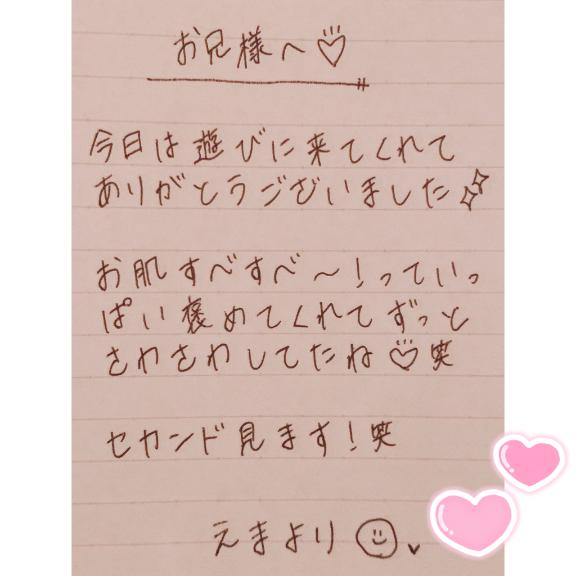 お兄様へ♡
今日は遊びに来てくれて
ありがとうございました✨
お肌すべすべ〜!っていっ
ぱい褒めてくれてずっと
さわさわしてたね♡笑
セカンド見ます!笑
えまより☺♥